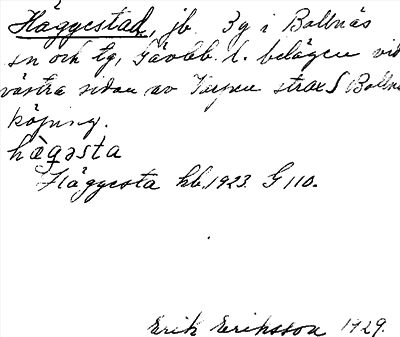 Häggestad, jb, 3g i Bollnäs
sn och tg, Gävleb. l. belägen vid
västra sidan av Varpen strax S Bollnäs
köping.
hὰgǝsta
Häggesta kb. 1923. G 110.
Erik Eriksson 1929.